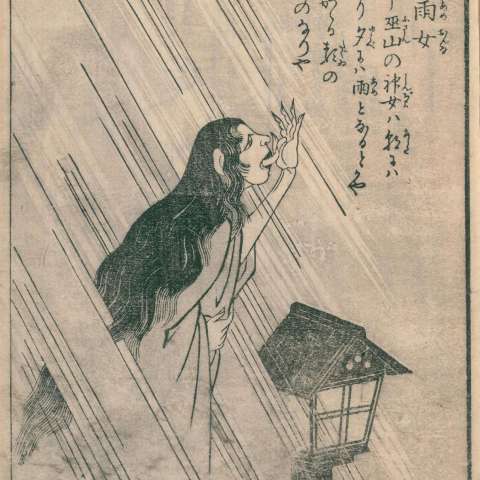 雨女
し巫山の神女ハ朝にハ
り夕にハ雨となるとかや
かゝる類の
のなりや